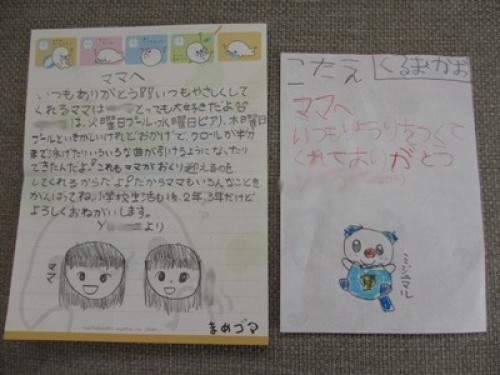 ママへ
いつもありがとう!!いつもやさしくして
くれるママは とっても大好きだよ
は、火曜日プール・水曜日ピアノ、木曜日
プールといそがしいけれど"おかげ"で、クロールが半分
まで泳げたりいろいろな曲が引けるようになったり
できたんだよ。これもママがおくり迎えを
してくれるからだよ。だからママもいろんなことを
がんばってね。小学校生活も後、2年、3年だけど
よろしくおねがいします。
Y より
ママ
まめゴマ
こたえ くるまかお
ママへ
いつもりょうりをつくて
くれてありがとう
ミジュマル